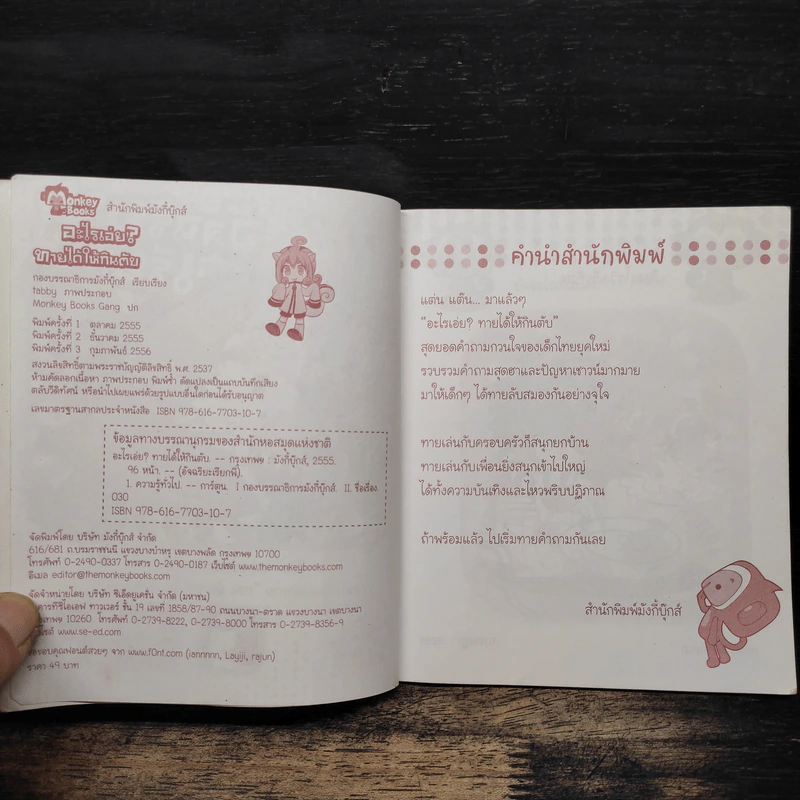 Monkey Books
สำนักพิมพ์มังกี้บุ๊กส์
อะไรเอ่ย?
ทายได้ให้กินตับ
กองบรรณาธิการมังกี้บุ๊กส์ เรียบเรียง
tabby ภาพประกอบ
Monkey Books Gang ปก
พิมพ์ครั้งที่ 1 ตุลาคม 2555
พิมพ์ครั้งที่ 2 ธันวาคม 2555
พิมพ์ครั้งที่ 3 กุมภาพันธ์ 2556
สงวนลิขสิทธิ์ตามพระราชบัญญัติลิขสิทธิ์ พ.ศ. 2537
ห้ามคัดลอกเนื้อหา ภาพประกอบ พิมพ์ซ้ำ ดัดแปลงเป็นแถบบันทึกเสียง
ตลับวีดิทัศน์ หรือนำไปเผยแพร่ด้วยรูปแบบอื่นใดก่อนได้รับอนุญาต
เลขมาตรฐานสากลประจำหนังสือ ISBN 978-616-7703-10-7
ข้อมูลทางบรรณานุกรมของสำนักหอสมุดแห่งชาติ
อะไรเอ่ย? ทายได้ให้กินตับ. -- กรุงเทพฯ : มังกี้บุ๊กส์, 2555.
96 หน้า. -- (อัจฉริยะเรียกพี่).
1. ความรู้ทั่วไป. -- การ์ตูน. I กองบรรณาธิการมังกี้บุ๊กส์. II. ชื่อเรื่อง.
030
ISBN 978-616-7703-10-7
จัดพิมพ์โดย บริษัท มังกี้บุ๊กส์ จำกัด
616/681 ถ.บรมราชชนนี แขวงบางบำหรุ เขตบางพลัด กรุงเทพฯ 10700
โทรศัพท์ 0-2490-0337 โทรสาร 0-2490-0187 เว็บไซต์ www.themonkeybooks.com
อีเมล editor@themonkeybooks.com
จัดจำหน่ายโดย บริษัท ซีเอ็ดยูเคชั่น จำกัด (มหาชน)
อาคารทีซีไอเอฟ ทาวเวอร์ ชั้น 19 เลขที่ 1858/87-90 ถนนบางนา-ตราด แขวงบางนา เขตบางนา
10260 โทรศัพท์ 0-2739-8222, 0-2739-8000 โทรสาร 0-2739-8356-9
www.se-ed.com
ขอขอบคุณฟอนต์สวยๆ จาก www.f0nt.com (iannnnn, Layiji, rajun)
ราคา 49 บาท
คำนำสำนักพิมพ์
แต่น แต๊น... มาแล้วๆ
"อะไรเอ่ย? ทายได้ให้กินตับ"
สุดยอดคำถามกวนใจของเด็กไทยยุคใหม่
รวบรวมคำถามสุดฮาและปัญหาเชาวน์มากมาย
มาให้เด็กๆ ได้ทายลับสมองกันอย่างจุใจ
ทายเล่นกับครอบครัวก็สนุกยกบ้าน
ทายเล่นกับเพื่อนยิ่งสนุกเข้าไปใหญ่
ได้ทั้งความบันเทิงและไหวพริบปฏิภาณ
ถ้าพร้อมแล้ว ไปเริ่มทายคำถามกันเลย
สำนักพิมพ์มังกี้บุ๊กส์